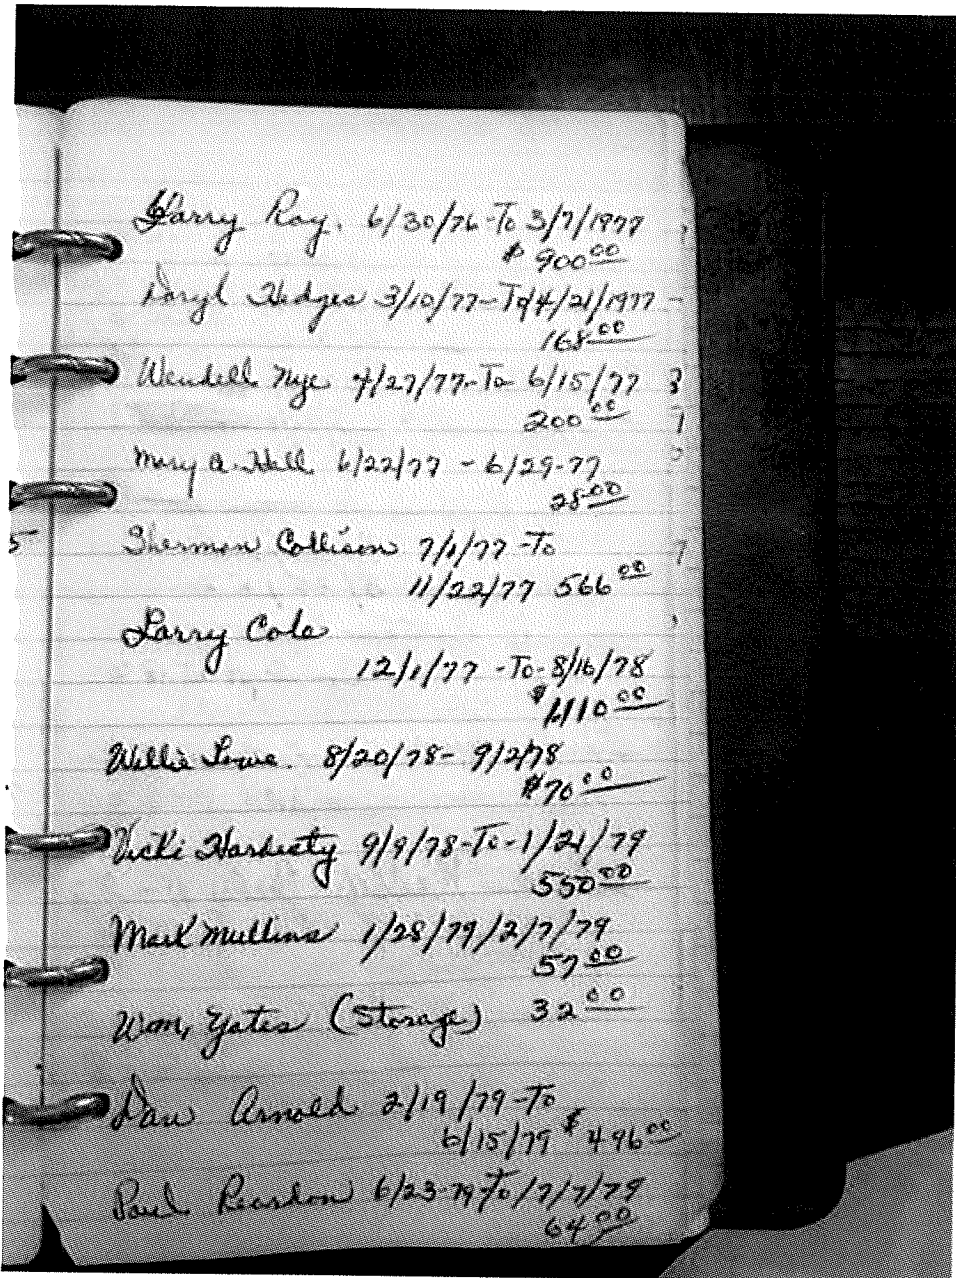 Harry Ray. 6/30/76-To 3/7/1977
$ 900 00
Daryl Hedges 3/10/77-To 4/21/1977
168 00
Wendell Nye 4/27/77-To 6/15/77
200 00
Mary A. Hall 6/22/77 - 6/29-77
28 00
Sherman Collison 7/1/77 -To
11/22/77 566 00
Larry Cole
12/1/77 -To- 8/16/78
$ 1110 00
Willie Lowe. 8/20/78- 9/2/78
$70 00
Vicki Hardesty 9/9/78-To-1/21/79
550 00
Mark Mullins 1/28/79/2/7/79
57 00
Wm, Yates (Storage) 32 00
Dan Arnold 2/19/79-To
6/15/79 $ 496 00
Paul Reardon 6/23-79 To/7/7/79
64 00